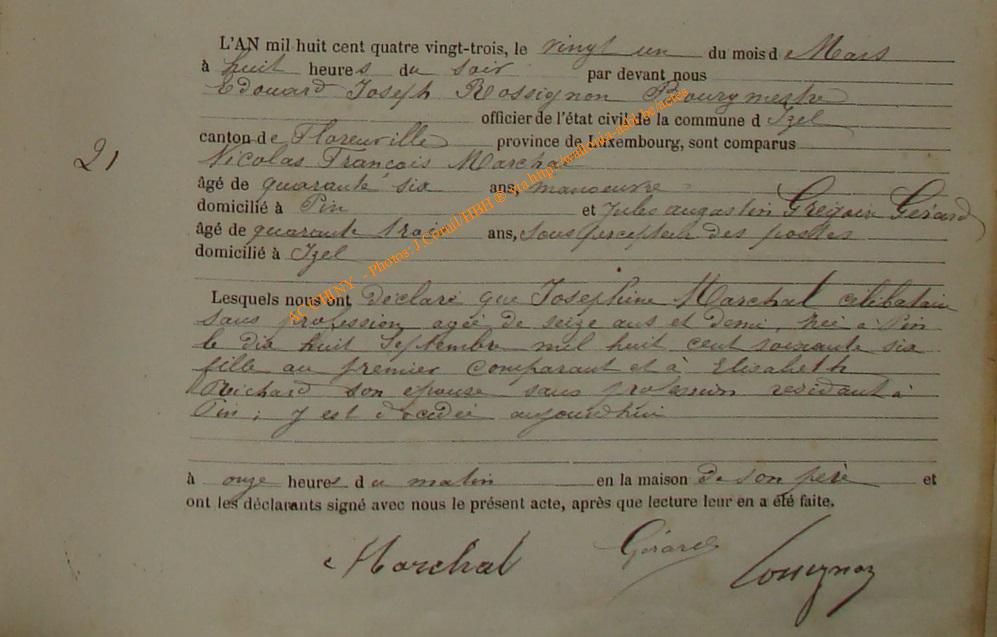 L'AN mil huit cent quatre vingt-trois, le vingt un du mois d Mars
à huit heures du soir par devant nous
Edouard Joseph Rossignon Bourgmestre
officier de l'état civil de la commune d Izel
canton de Florenville province de Luxembourg, sont comparus
Nicolas François Marchal
âgé de quarante six ans, manoeuvre
domicilié à Pin et Jules augustin Grégoir Gérard
âgé de quarante trois ans, sous percepteur des postes
domicilié à Izel
21
Lesquels nous ont déclaré que Joséphine Marchal célibataire
sans profession agée de seize ans et demi, née à Pin
le dix huit Septembre mil huit cent soixante six
fille au premier comparant et à Elisabeth
Richard son épouse sans profession residant à
Pin ; y est décédée aujourd'hui
à onze heures du matin en la maison de son père et
ont les déclarants signé avec nous le présent acte, après que lecture leur en a été faite.
Marchal Gérard Rossignon
AC CHINY - Photos: J Cornil/HBH ® via http://wallonia-asbl.be/actes